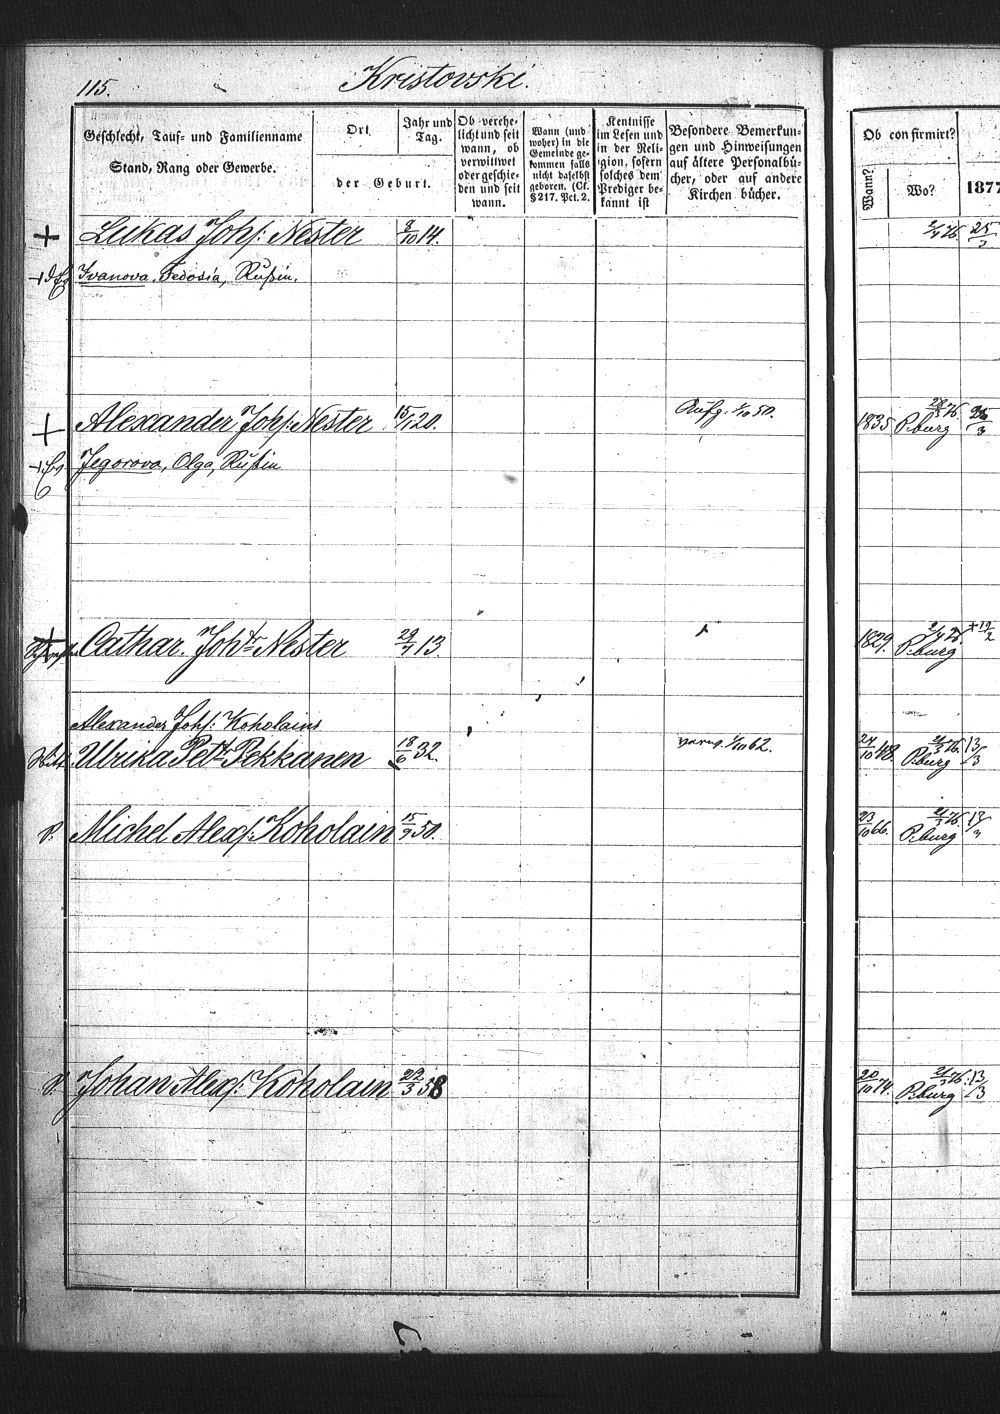 115. Kristovski.
Geschlecht, Tauf- und Familienname
Stand, Rang oder Gewerbe.
Ort
Jahr und Tag.
der Geburt.
Ob verehe-
licht und seit
wann, ob
verwittwet
oder geschie-
den und seit
wann.
Wann (und
woher) in die
Gemeinde ge-
kommen falls
nicht daselbst
geboren. (Cf.
§ 217. Pct. 2.
Kentnisse
im Lesen und
in der Reli-
gion, sofern
solches dem
Prediger be-
kannt ist
Besondere Bemerkun-
gen und Hinweisungen
auf ältere Personalbü-
cher, oder auf andere
Kirchen bücher.
Ob confirmirt?
Wann?
Wo?
1877
+ Lukas Johs: Nester 8/10 14. 25/3
Ivanova, Fedosia, Rußin.
+ Alexander Johs: Nester 15/1 20. Aufg. 50. 1835 P.burg
Jegorova, Olga, Rußin
Cathar. Joh. Nester 29/7 13. 1829. P.burg +19/2
Alexander Johs: Koholains
Ulrika Petr Pekkanen 18/6 32. 62. 24/10 48. P.burg 13/3
Michel Alexs: Koholain 15/9 50. 23/10 66. P.burg 13/3
Johan Alexs: Koholain 29/3 58 20/10 74. P.burg 13/3